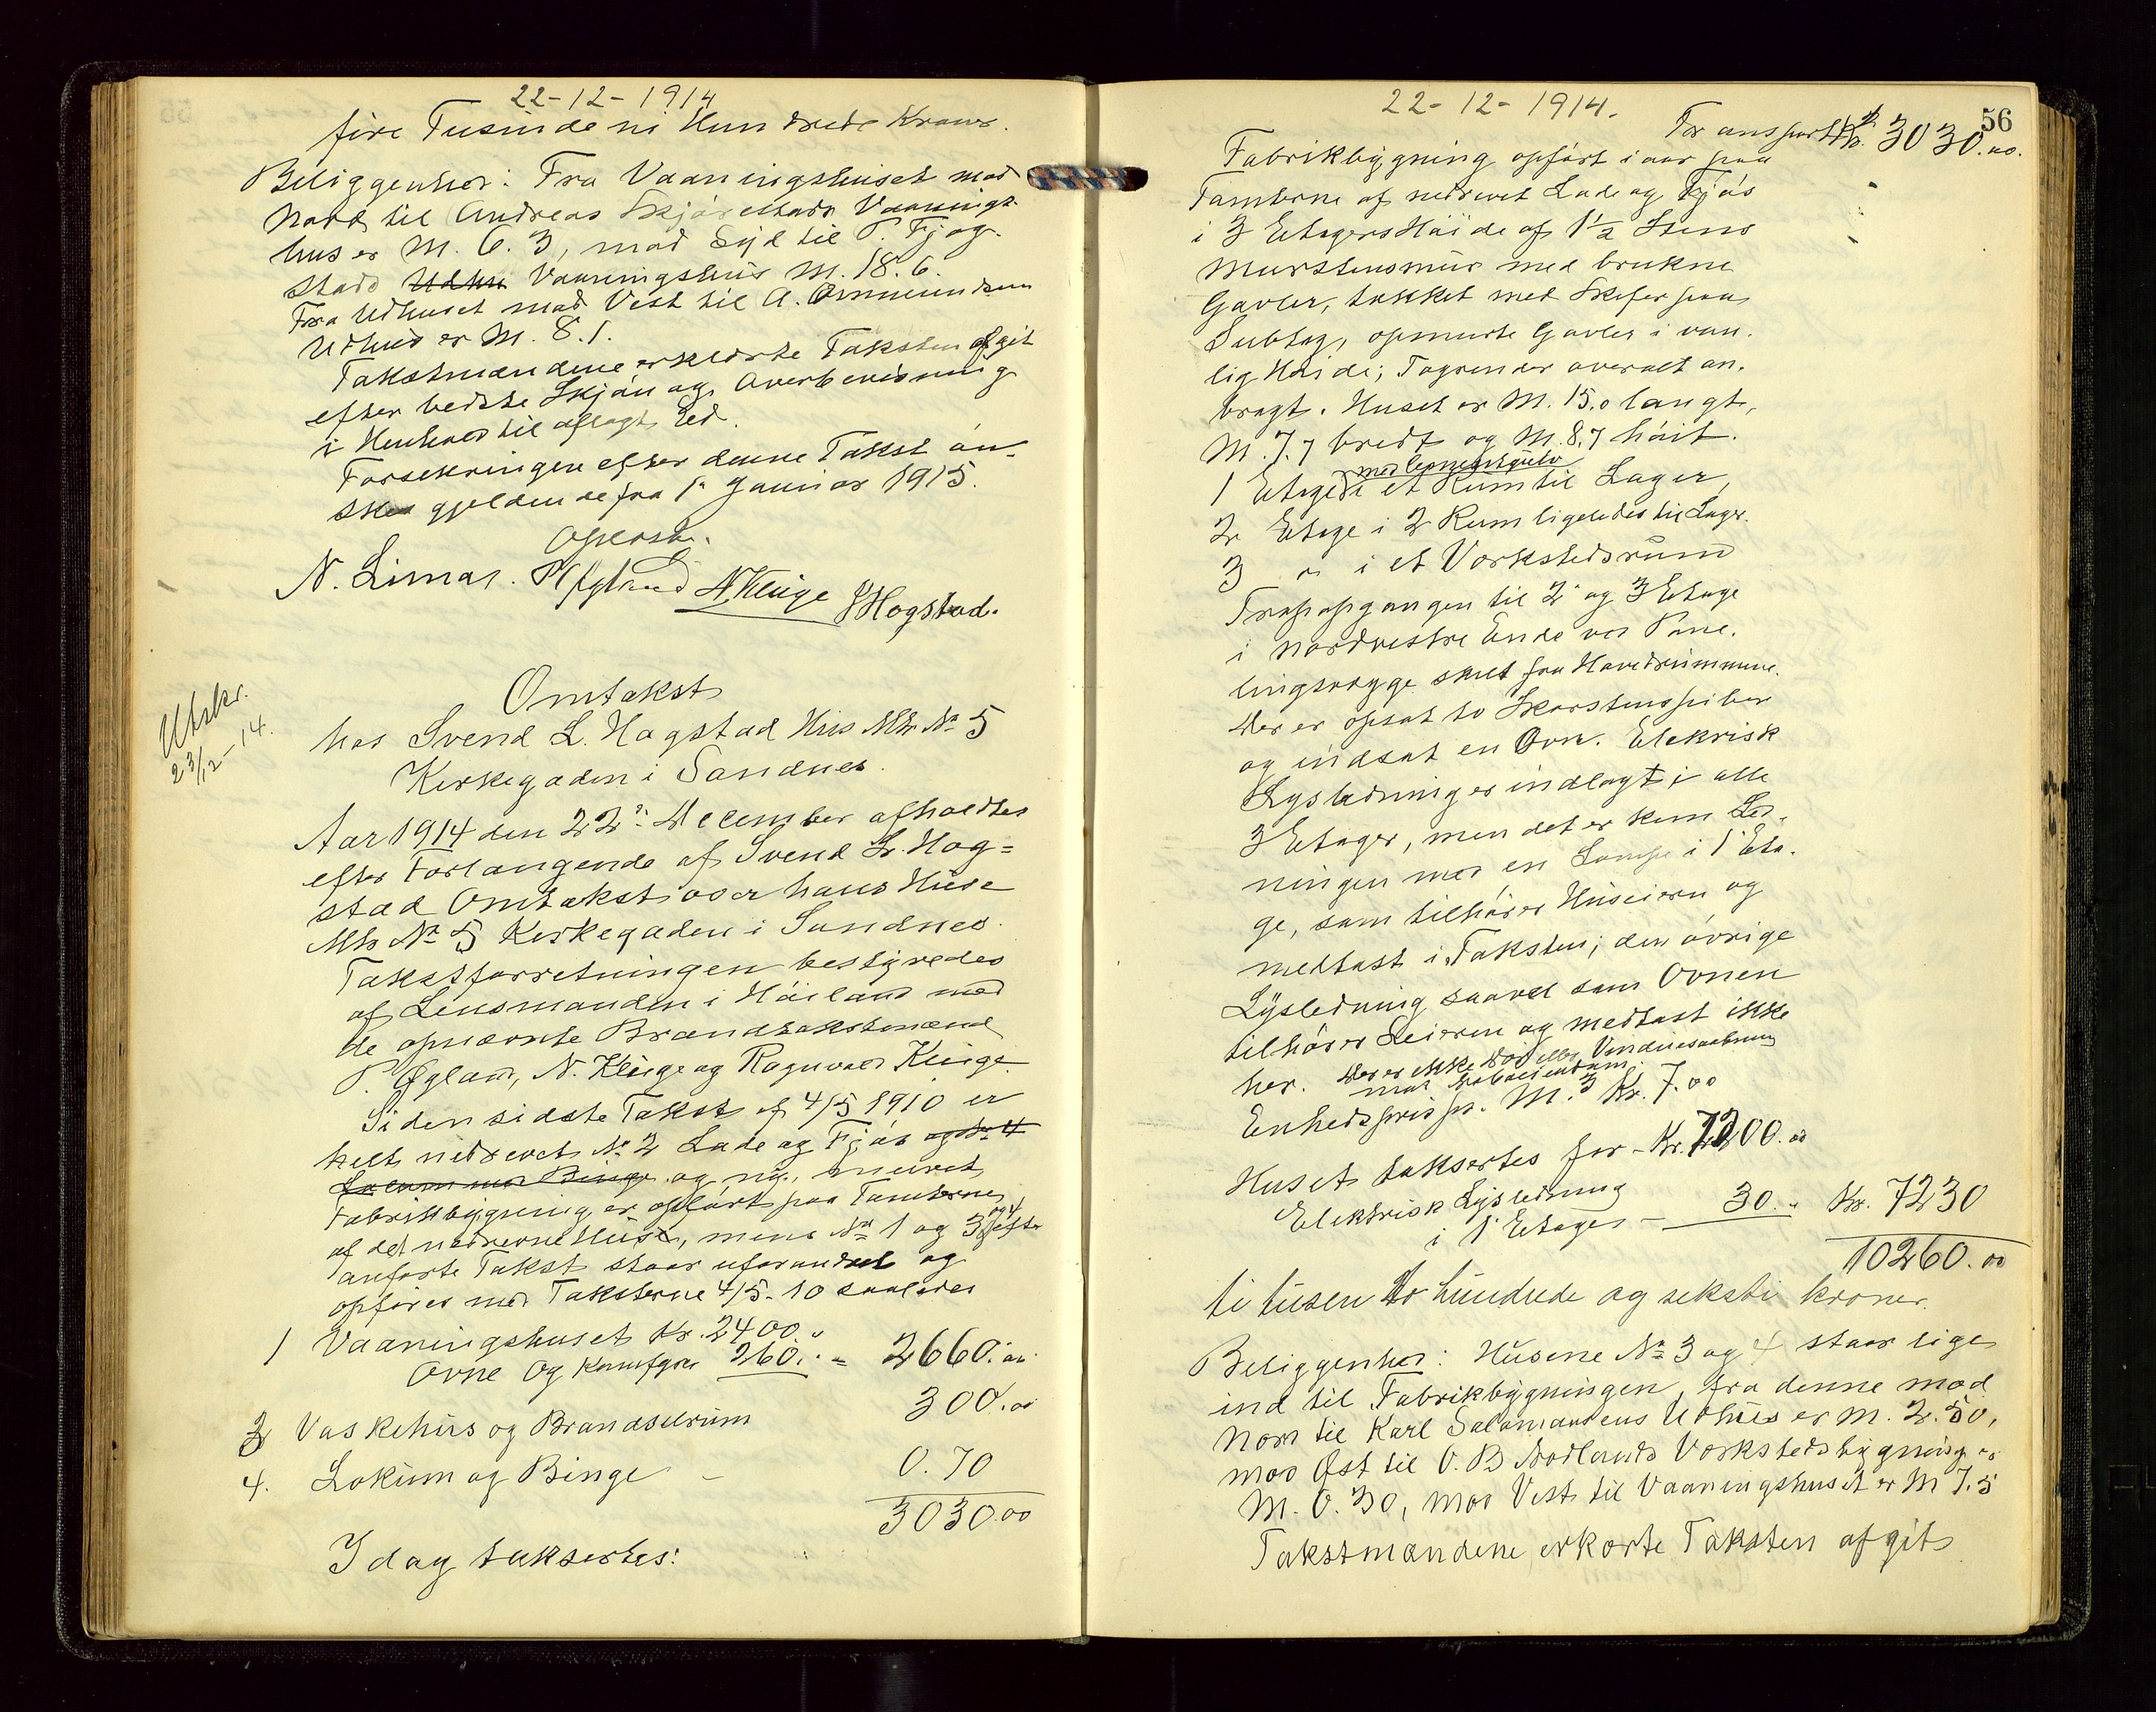 22-12-1914
fire Tusinde ni Hundrede Kroner.
Beliggenhed: Fra Vaaningshuset mod
Nord til Andreas Skjærestads Vaanings-
hus er M. 6.3, mod Syd til T. Fjog-
stads Udhu Vaaningshus M. 18.6.
Fra Udhuset mod Vest til A. Ommundsen
Udhus er M. 8.1.
Takstmændene erklærte Taksten afgit
efter bedste Skjøn og Overbevisning
i Henhold til aflagt Ed.
Forsekringen efter denne Takst øn-
skes gjeldende fra 1ª Januar 1915.
Oplæst.
N. Limar. P Øgland N. Kluge S Hogstad.
Utskr.
23/12-14.
Omtakst
hos Svend L. Hogstad Hus Mtr Nº 5
Kirkegaden i Sandnes.
Aar 1914 den 22ª December afholdtes
efter Forlangende af Svend L. Hog=
stad Omtakst over hans Huse
Mtr Nº 5 Kirkegaden i Sandnes.
Takstforretningen bestyredes
af Lensmanden i Høiland med
de opnævnte Brandtakstmænd
P. Øgland, N. Kluge og Ragnvald Kluge.
Siden sidste Takst af 4/5 1910 er
helt nedrevet Nº 2 Lade og Fjøs og Nº 4
Locum med Binge og ny, muret
Fabrikbygning er opført paa Tomterne
af det nedrevne Huse, mens Nº 1 og 3 og 4 efter
anførte Takst staar uforandret og
opføres med Taksterne 4/5-10 saaledes
1 Vaaningshuset Kr. 2400.„
Ovne og Komfyre 260.„ - 2660.oo
3 Vaskehus og Brandselrum 300.oo
4. Lokum og Binge - 0.70
3030.oo
I dag taksertes:
22-12-1914.
56
Transport Kr. 3030.oo.
Fabrikbygning opført i aar paa
Tomterne af nedrevet Lade og Fjøs
i 3 Etagers Høide af 1 1/2 Stens
Murstensmur med brukne
Gavler, tækket med Skifer paa
Sutag, opmurte Gavler i van-
lig Høide; Tagrender overalt an-
bragt. Huset er M. 15.0 langt,
M. 7.7 bredt og M. 8.7 høit.
med cementgulv
1 Etage i et Rum til Lager,
2 Etage i 2 Rum ligeledes til Lager.
3 „ i et Verkstedsrum
Trappopgangen til 2 og 3 Etage
i nordvestre Ende ved Pane-
lingsvægge skilt fra Hovedrummene.
Der er opsat to Skorstenspiber
og indsat en Ovn. Elekrisk
Lysledning er indlagt i alle
3 Etager, men det er kun Led-
ningen med en Lampe i 1ª Eta-
ge, som tilhører Huseieren og
medtast i Taksten; den øvrige
Lysledning saavel som Ovnen
tilhører Leieren og medtast ikke
her. Der er ikke Dør eller Vinduesaabning
mod Naboeiendom.
Enhedspris pr. M.³ Kr. 7.oo
Huset taksertes for - Kr. 7200.oo
Elektrisk Lysledning
i 1ª Etages - 30.„ Kr. 7230
10260.oo
ti tusen to hundrede og seksti kroner.
Beliggenhed: Husene Nº 3 og 4 staar lige
ind til Fabrikbygningen, fra denne mod
Nord til Karl Salomonsens Udhus er M. 2.50,
mod Øst til O. B. Nordlands Verkstedsbygning er
M. 0.30, mod Vest til Vaaningshuset er M 7.5
Takstmændene erkærte Taksten afgit